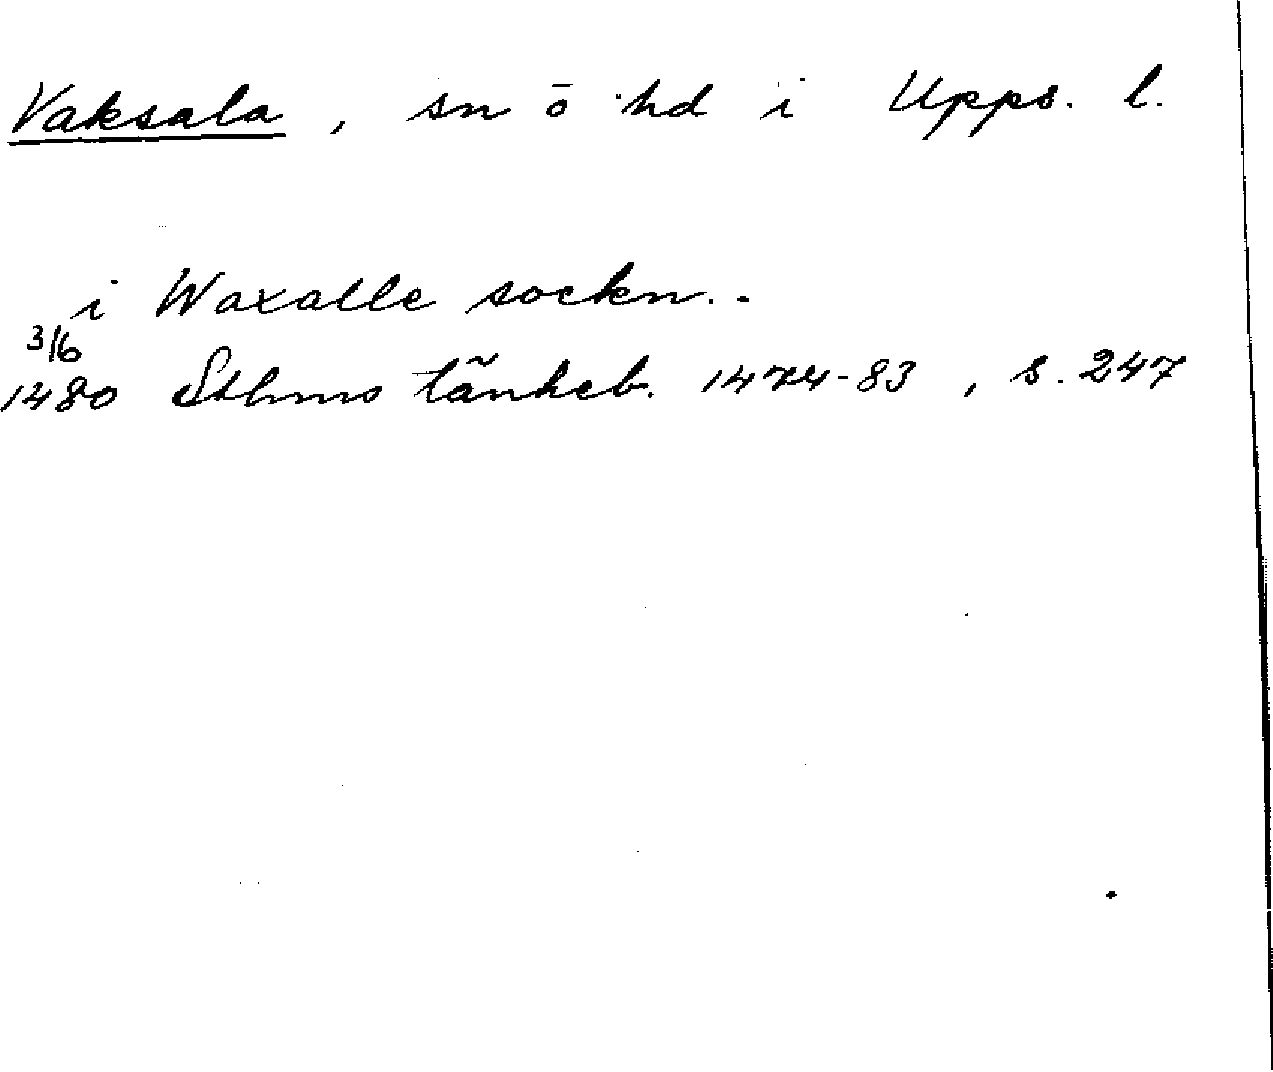 Vaksala, sn o hd i Upps. l.
i Waxalle sockn..
3/6
1480 Sthms tänkeb. 1474-83, s. 247